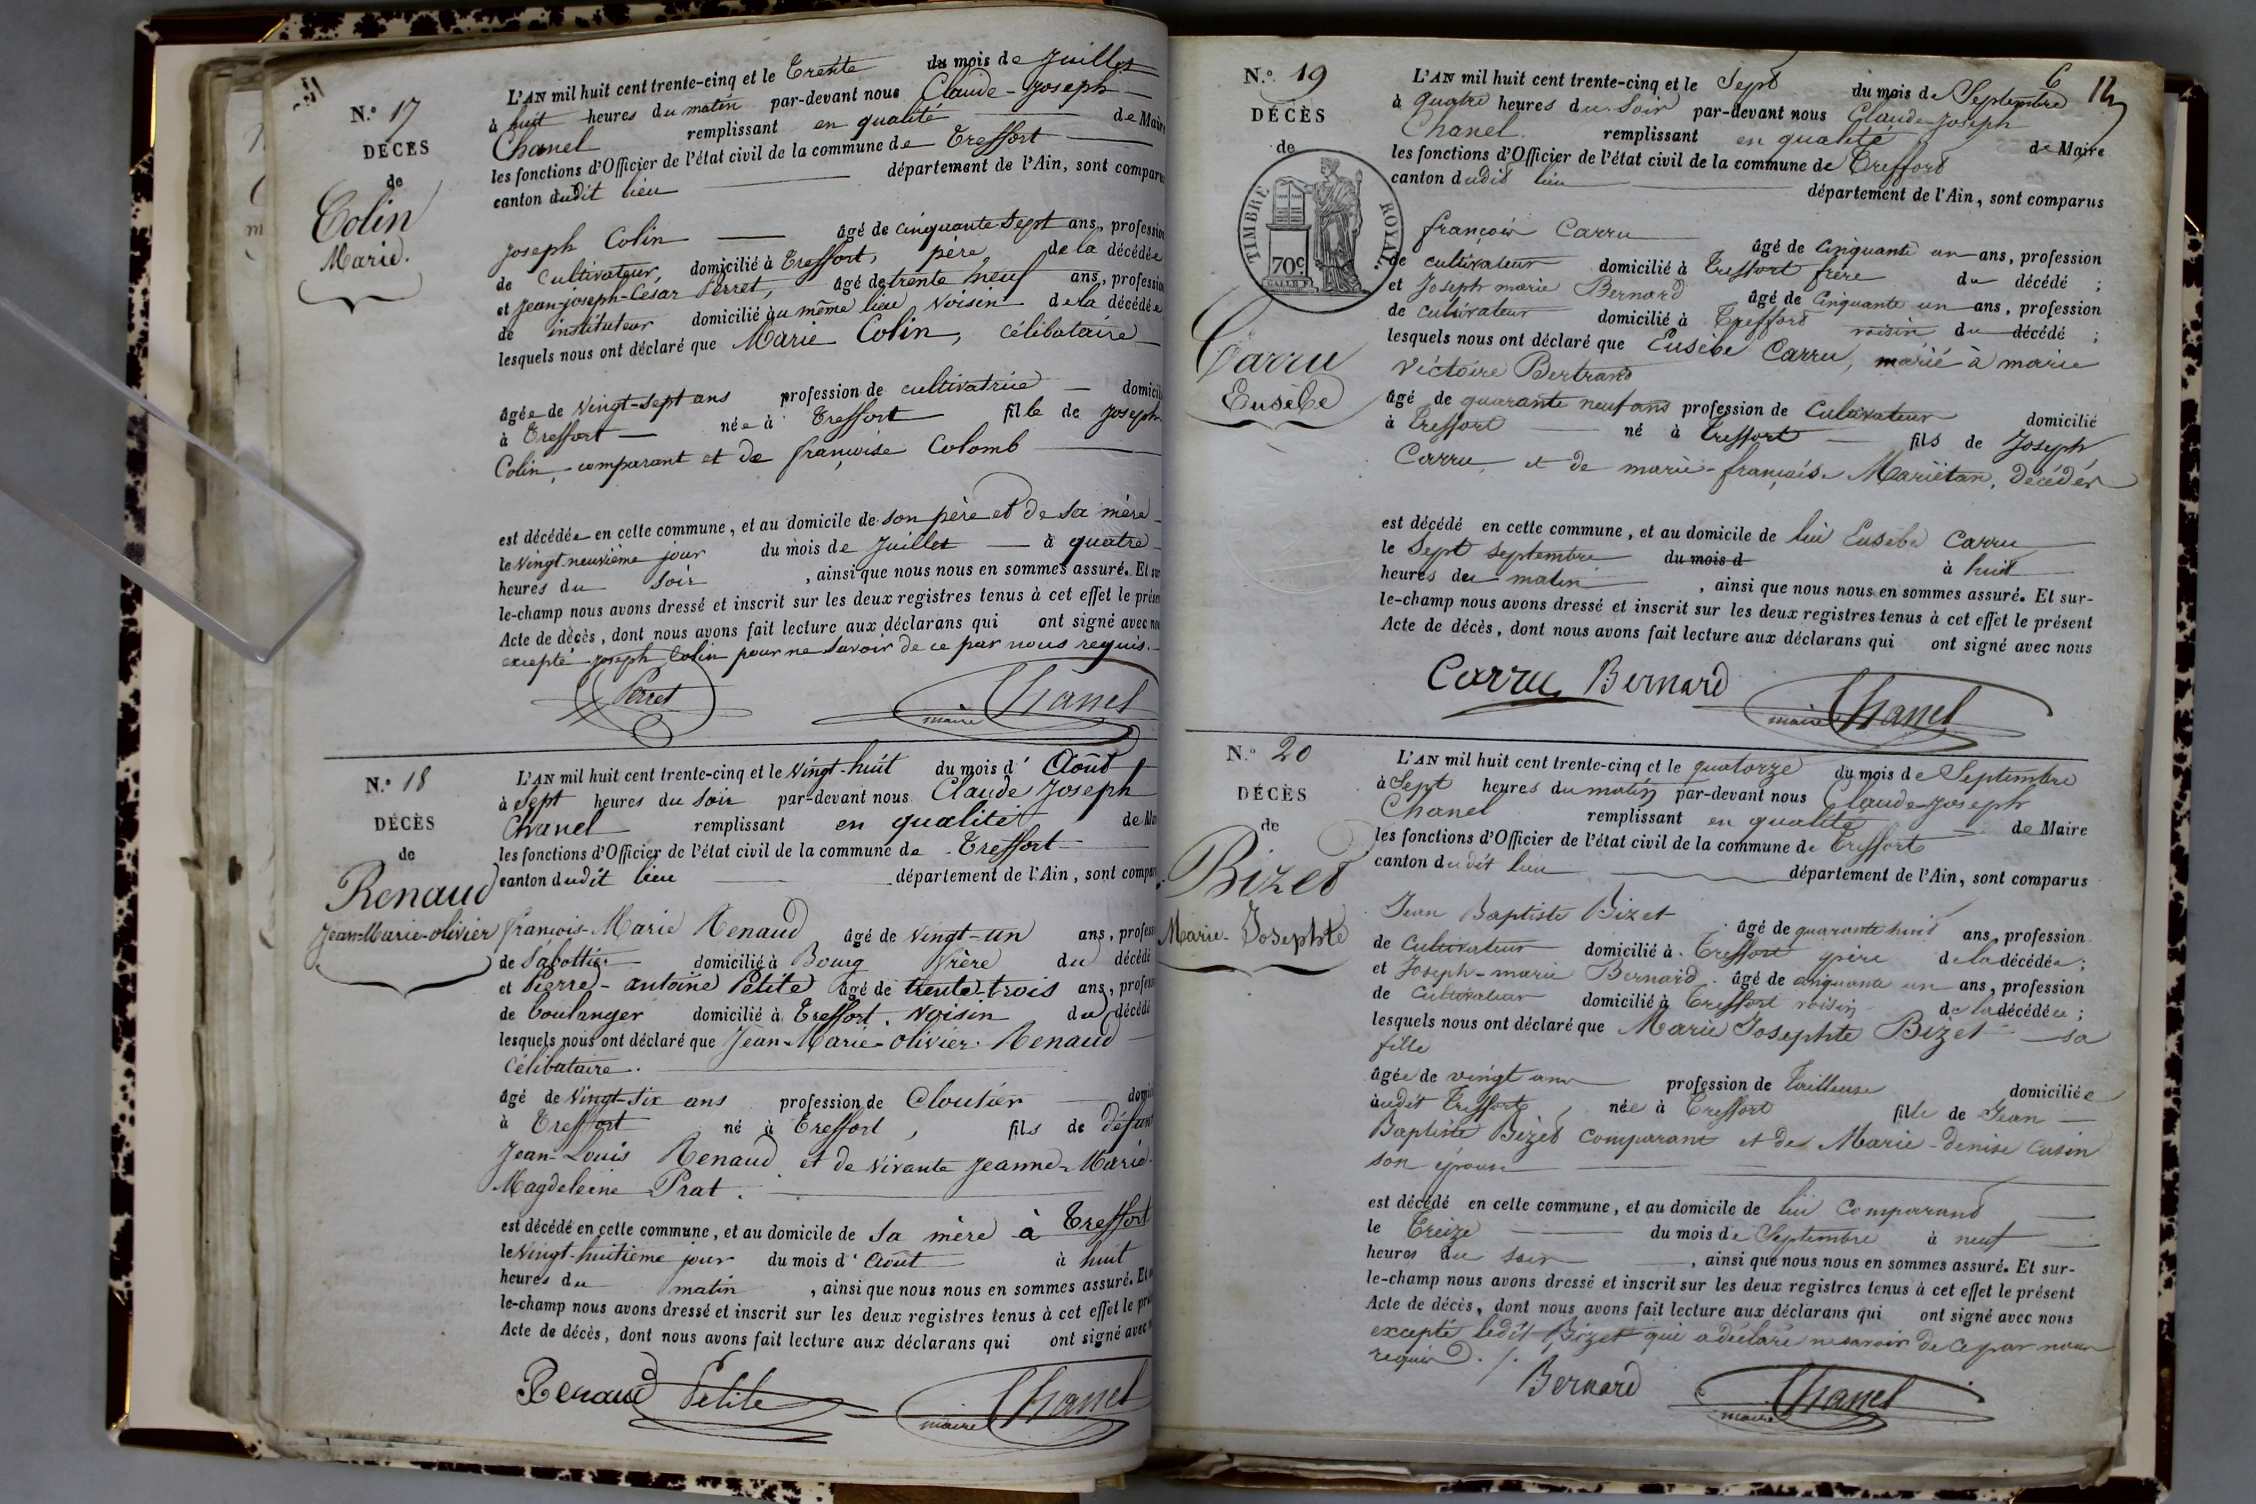 N.º 17
DÉCÈS
de
Colin
Marie.
L'AN mil huit cent trente-cinq et le Trente du mois de Juillet
à huit heures du matin par-devant nous Claude-Joseph
Chanel remplissant en qualité de Maire
les fonctions d'Officier de l'état civil de la commune de Treffort
canton dudit lieu département de l'Ain, sont comparus
Joseph Colin âgé de cinquante sept ans, profession
de cultivateur, domicilié à Treffort, père de la décédée
et Jean-joseph-César Perret, âgé de trente neuf ans, profession
de instituteur domicilié au même lieu voisin de la décédée
lesquels nous ont déclaré que Marie Colin, célibataire
âgée de vingt-sept ans profession de cultivatrice domicil
à Treffort née à Treffort fille de Joseph
Colin, comparant et de françoise Colomb
est décédée en cette commune, et au domicile de son père et de sa mère
le vingt neuvième jour du mois de Juillet à quatre
heures du soir, ainsi que nous nous en sommes assuré. Et sur
le-champ nous avons dressé et inscrit sur les deux registres tenus à cet effet le présen
Acte de décès, dont nous avons fait lecture aux déclarans qui ont signé avec nou
excepté joseph Colin pour ne savoir de ce par nous requis.
Perret maire Chanel
N.º 18
DÉCÈS
de
Renaud
Jean-Marie-olivier
L'AN mil huit cent trente-cinq et le vingt-huit du mois d' Août
à sept heures du soir par-devant nous Claude Joseph
Chanel remplissant en qualité de Mai
les fonctions d'Officier de l'état civil de la commune de Treffort
canton dudit lieu département de l'Ain, sont compar
françois-Marie Renaud âgé de vingt-un ans, profess
de Sabottier domicilié à Bourg frère du décédé
et Pierre-antoine Petite âgé de trente-trois ans, profess
de boulanger domicilié à Treffort, voisin du décédé
lesquels nous ont déclaré que Jean-Marie-olivier Renaud
célibataire.
âgé de vingt-six ans profession de Cloutier domici
à Treffort né à Treffort, fils de défunt
Jean-Louis Renaud et de vivante jeanne-Marie-
Magdeleine Prat.
est décédé en cette commune, et au domicile de sa mère à Treffort
le vingt-huitième jour du mois d' Août à huit
heures du matin, ainsi que nous nous en sommes assuré. Et
le-champ nous avons dressé et inscrit sur les deux registres tenus à cet effet le pré
Acte de décès, dont nous avons fait lecture aux déclarans qui ont signé avec
Renaud Petite maire Chanel
6
N.º 19
DÉCÈS
de
TIMBRE ROYAL
70c
Carru
Eusèbe
L'AN mil huit cent trente-cinq et le Sept du mois de Septembre
à quatre heures du Soir par-devant nous Claude Joseph
Chanel remplissant en qualité de Maire
les fonctions d'Officier de l'état civil de la commune de Treffort
canton dudit lieu département de l'Ain, sont comparus
françois Carru âgé de cinquante un ans, profession
de cultivateur domicilié à Treffort frère du décédé ;
et Joseph marie Bernard âgé de cinquante un ans, profession
de cultivateur domicilié à Treffort voisin du décédé ;
lesquels nous ont déclaré que Eusebe Carru, marié à marie
victoire Bertrand
âgé de quarante neuf ans profession de Cultivateur domicilié
à Treffort né à Treffort fils de Joseph
Carru et de marie-françoise Mariétan, décédés
est décédé en cette commune, et au domicile de lui Eusebe Carru
le Sept Septembre du mois d à huit
heures du matin, ainsi que nous nous en sommes assuré. Et sur-
le-champ nous avons dressé et inscrit sur les deux registres tenus à cet effet le présent
Acte de décès, dont nous avons fait lecture aux déclarans qui ont signé avec nous
Carru Bernard maire Chanel
N.º 20
DÉCÈS
de
Bizet
Marie-Josephte
L'AN mil huit cent trente-cinq et le quatorze du mois de Septembre
à Sept heures du matin par-devant nous Claude-Joseph
Chanel remplissant en qualité de Maire
les fonctions d'Officier de l'état civil de la commune de Treffort
canton dudit lieu département de l'Ain, sont comparus
Jean Baptiste Bizet âgé de quarante huit ans, profession
de Cultivateur domicilié à Treffort père de la décédée ;
et Joseph-marie Bernard âgé de cinquante un ans, profession
de Cultivateur domicilié à Treffort voisin de la décédée ;
lesquels nous ont déclaré que Marie Josephte Bizet sa
fille
âgée de vingt ans profession de Tailleuse domiciliée
audit Treffort, née à Treffort fille de Jean
Baptiste Bizet comparant et de Marie-denise Cusin
son épouse
est décédé en cette commune, et au domicile de lui Comparant
le Treize du mois de Septembre à neuf
heures du soir, ainsi que nous nous en sommes assuré. Et sur-
le-champ nous avons dressé et inscrit sur les deux registres tenus à cet effet le présent
Acte de décès, dont nous avons fait lecture aux déclarans qui ont signé avec nous
excepté ledit Bizet qui a déclaré ne savoir de ce par nous
requis.
Bernard maire Chanel